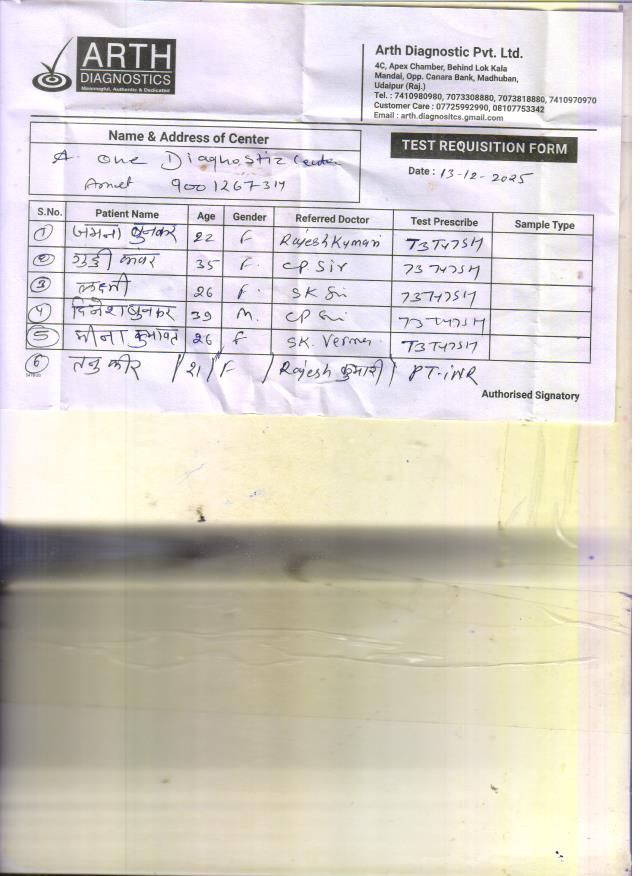 ARTH
DIAGNOSTICS
Meaningful, Authentic & Dedicated
Arth Diagnostic Pvt. Ltd.
4C, Apex Chamber, Behind Lok Kala
Mandai, Opp. Canara Bank, Madhuban,
Udaipur (Raj.)
Tel. : 7410980980, 7073308880, 7073818880, 7410970970
Customer Care : 07725992990, 08107753342
Email : arth.diagnositcs.gmail.com
Name & Address of Center
A. One Diagnostic Center
Amet 9001267314
TEST REQUISITION FORM
Date : 13-12-2025
S.No. Patient Name Age Gender Referred Doctor Test Prescribe Sample Type
1 जमना बुनकर 22 F Rajesh Kumari T3T4TSH
2 गुड्डी कंवर 35 F. CP Sir T3T4TSH
3 लक्ष्मी 26 F. SK Sir T3T4TSH
4 दिनेश बुनकर 39 M. CP Sir T3T4TSH
5 मीना कुमावत 26 F SK. Verma T3T4TSH
6 तनु कीर / 21 / F / Rajesh कुमारी / PT-INR
Authorised Signatory